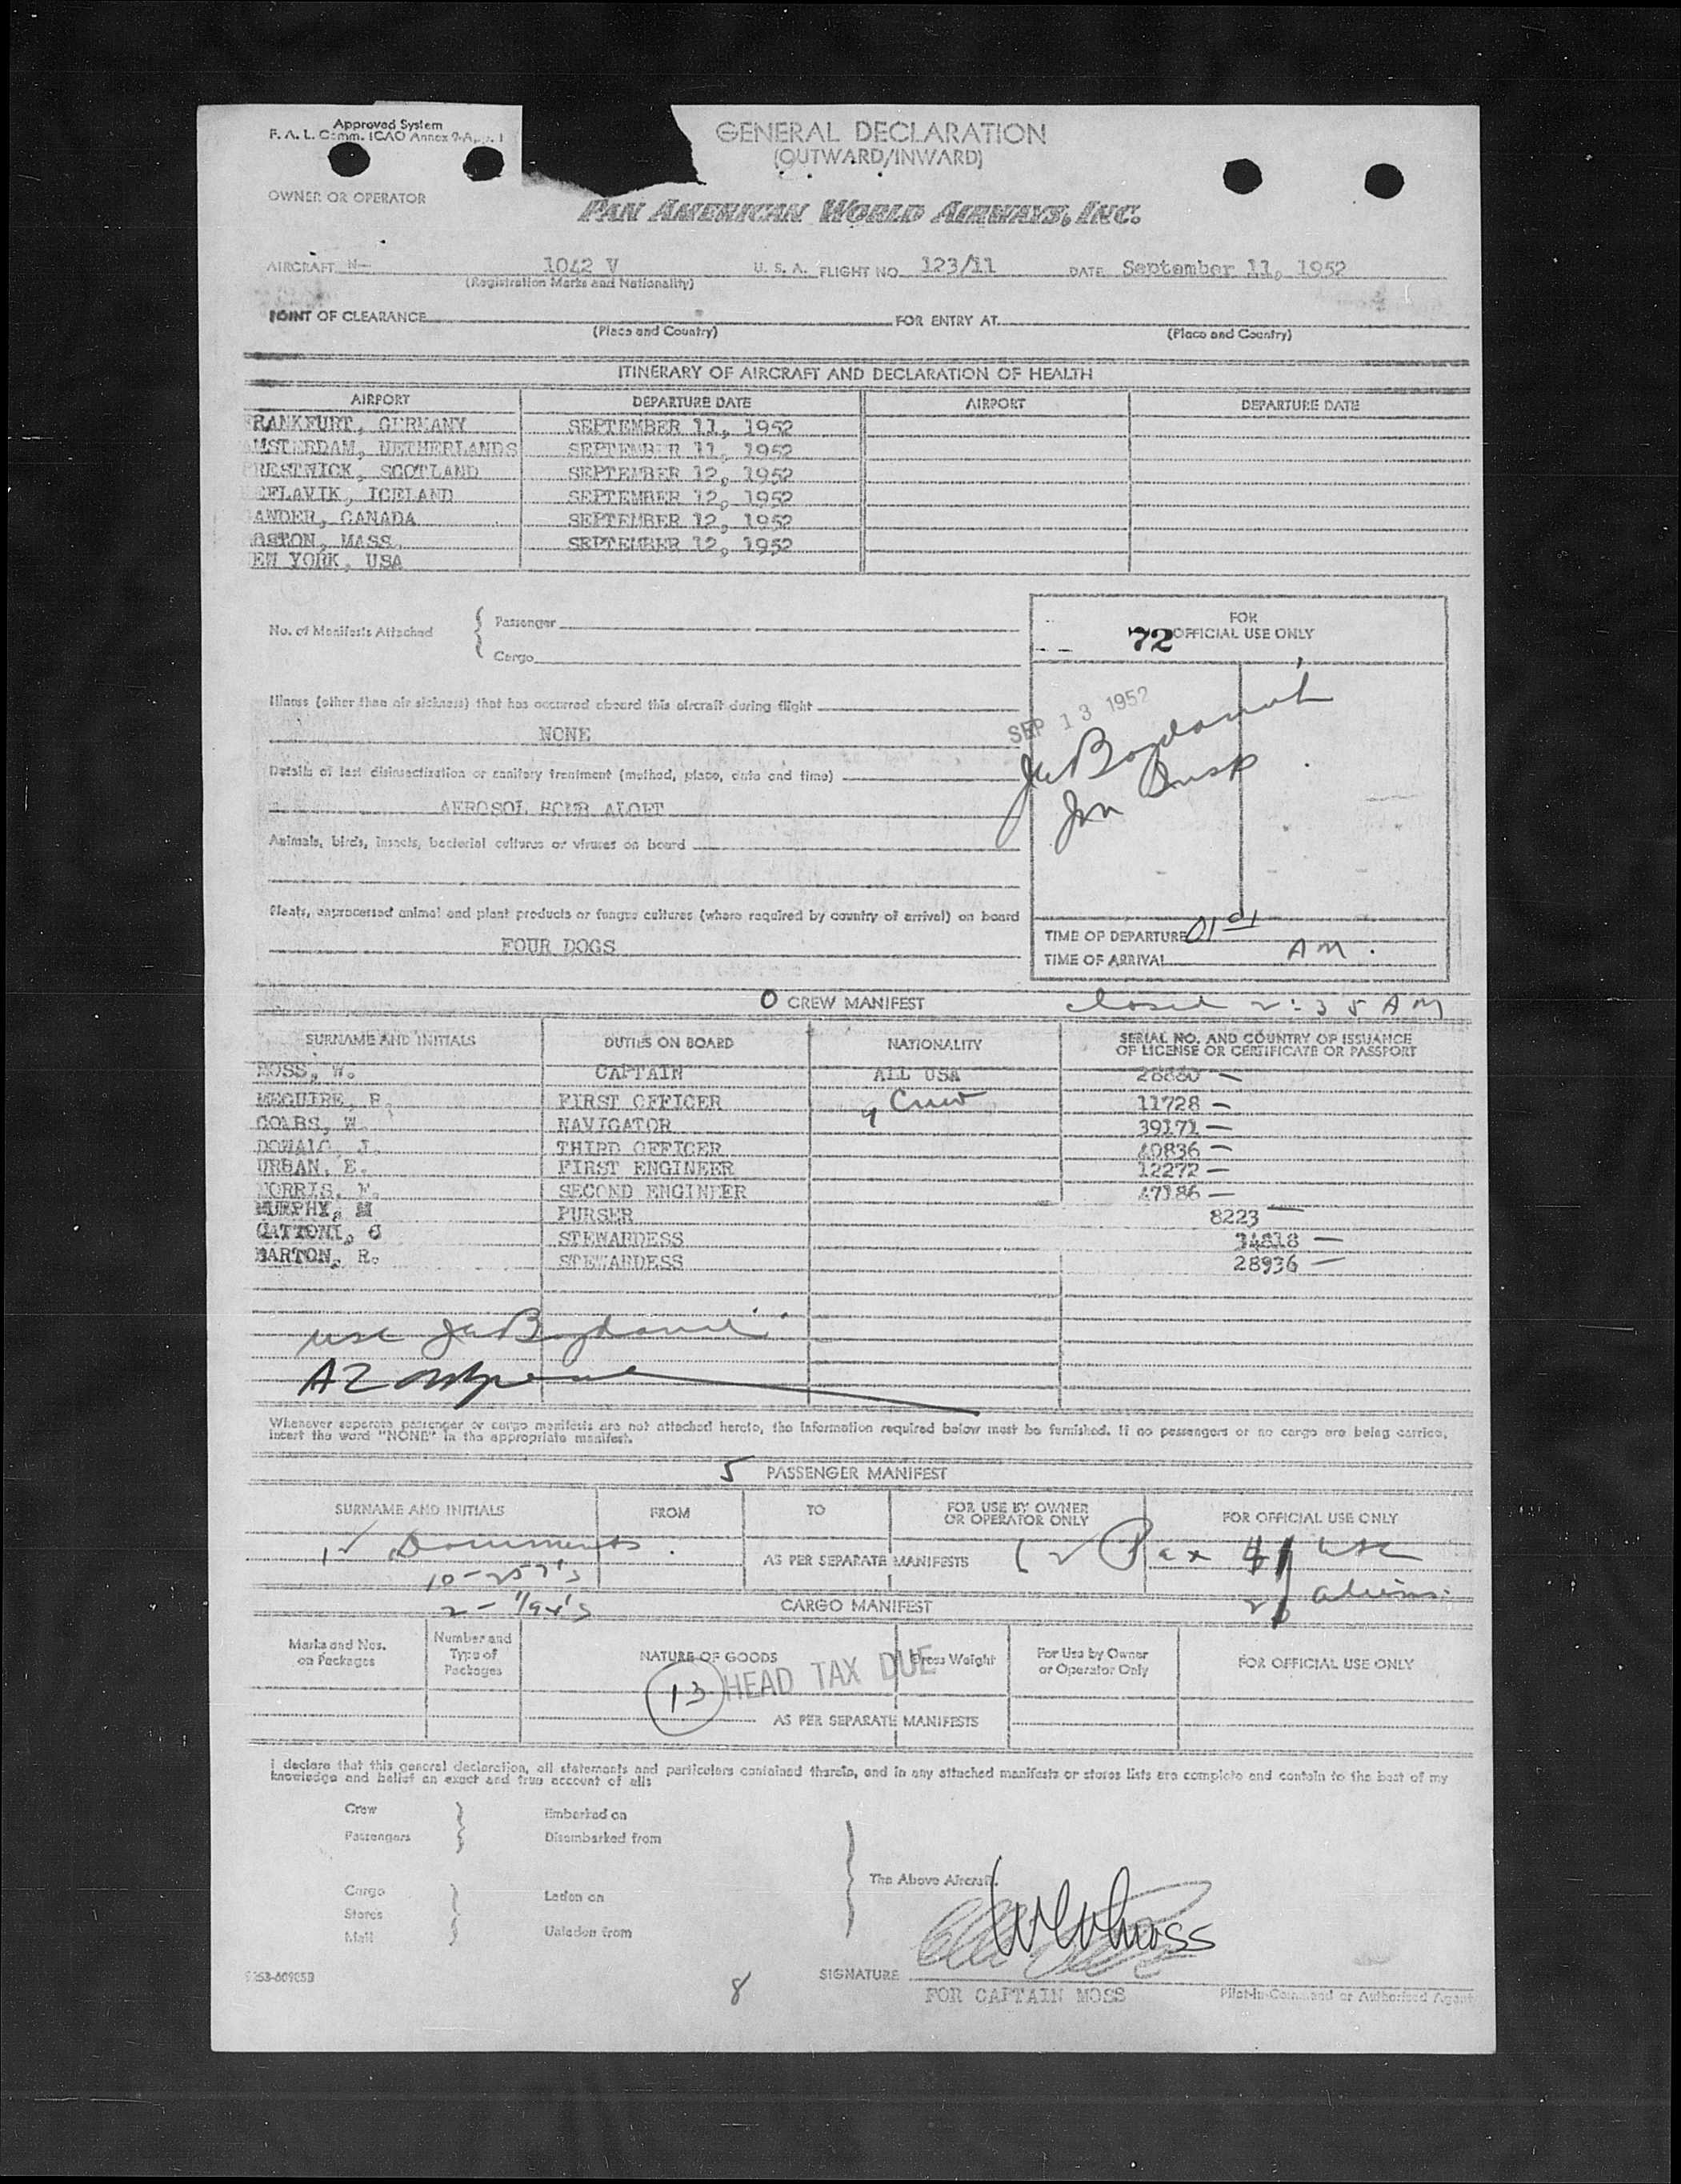 Approved System
F. A. L. Comm. ICAO Annex 9-App. 1
GENERAL DECLARATION
(OUTWARD/INWARD)
OWNER OR OPERATOR
PAN AMERICAN WORLD AIRWAYS, INC.
AIRCRAFT N- 1042 V U. S. A. FLIGHT NO. 123/11 DATE September 11, 1952
(Registration Marks and Nationality)
POINT OF CLEARANCE FOR ENTRY AT
(Place and Country) (Place and Country)
ITINERARY OF AIRCRAFT AND DECLARATION OF HEALTH
AIRPORT DEPARTURE DATE AIRPORT DEPARTURE DATE
FRANKFURT, GERMANY SEPTEMBER 11, 1952
AMSTERDAM, NETHERLANDS SEPTEMBER 11, 1952
PRESTWICK, SCOTLAND SEPTEMBER 12, 1952
KEFLAVIK, ICELAND SEPTEMBER 12, 1952
GANDER, CANADA SEPTEMBER 12, 1952
BOSTON, MASS. SEPTEMBER 12, 1952
NEW YORK, USA
No. of Manifests Attached
Passenger
Cargo
FOR
72 OFFICIAL USE ONLY
Illness (other than air sickness) that has occurred aboard this aircraft during flight
NONE
SEP 13 1952
Details of last disinsectization or sanitary treatment (method, place, date and time)
AEROSOL BOMB ALOFT
Animals, birds, insects, bacterial cultures or viruses on board
Meats, unprocessed animal and plant products or fungus cultures (where required by country of arrival) on board
FOUR DOGS
TIME OF DEPARTURE 01 01
TIME OF ARRIVAL AM.
0 CREW MANIFEST closed 2:35 AM
SURNAME AND INITIALS DUTIES ON BOARD NATIONALITY SERIAL NO. AND COUNTRY OF ISSUANCE
OF LICENSE OR CERTIFICATE OR PASSPORT
MOSS, W. CAPTAIN ALL USA 28880 —
MEGUIRE, P. FIRST OFFICER 9 Crew 11728 —
COMBS, W. NAVIGATOR 39171 —
DONALD, J. THIRD OFFICER 40836 —
URBAN, E. FIRST ENGINEER 12272 —
NORRIS, F. SECOND ENGINEER 47186 —
MURPHY, M PURSER 8223 —
GATTONI, C STEWARDESS 34818 —
BARTON, R. STEWARDESS 28936 —
Whenever separate passenger or cargo manifests are not attached hereto, the information required below must be furnished. If no passengers or no cargo are being carried,
insert the word "NONE" in the appropriate manifest.
5 PASSENGER MANIFEST
SURNAME AND INITIALS FROM TO FOR USE BY OWNER
OR OPERATOR ONLY FOR OFFICIAL USE ONLY
12 Documents. AS PER SEPARATE MANIFESTS Pax
10 - 257's aliens
CARGO MANIFEST
Marks and Nos.
on Packages
Number and
Type of
Packages
NATURE OF GOODS Gross Weight
For Use by Owner
or Operator Only
FOR OFFICIAL USE ONLY
13 HEAD TAX DUE
AS PER SEPARATE MANIFESTS
I declare that this general declaration, all statements and particulars contained therein, and in any attached manifests or stores lists are complete and contain to the best of my
knowledge and belief an exact and true account of all:
Crew Embarked on
Passengers Disembarked from
The Above Aircraft.
Cargo Laden on
Stores
Mail Unladen from
W Moss
SIGNATURE
8 FOR CAPTAIN MOSS Pilot-in-Command or Authorised Agent